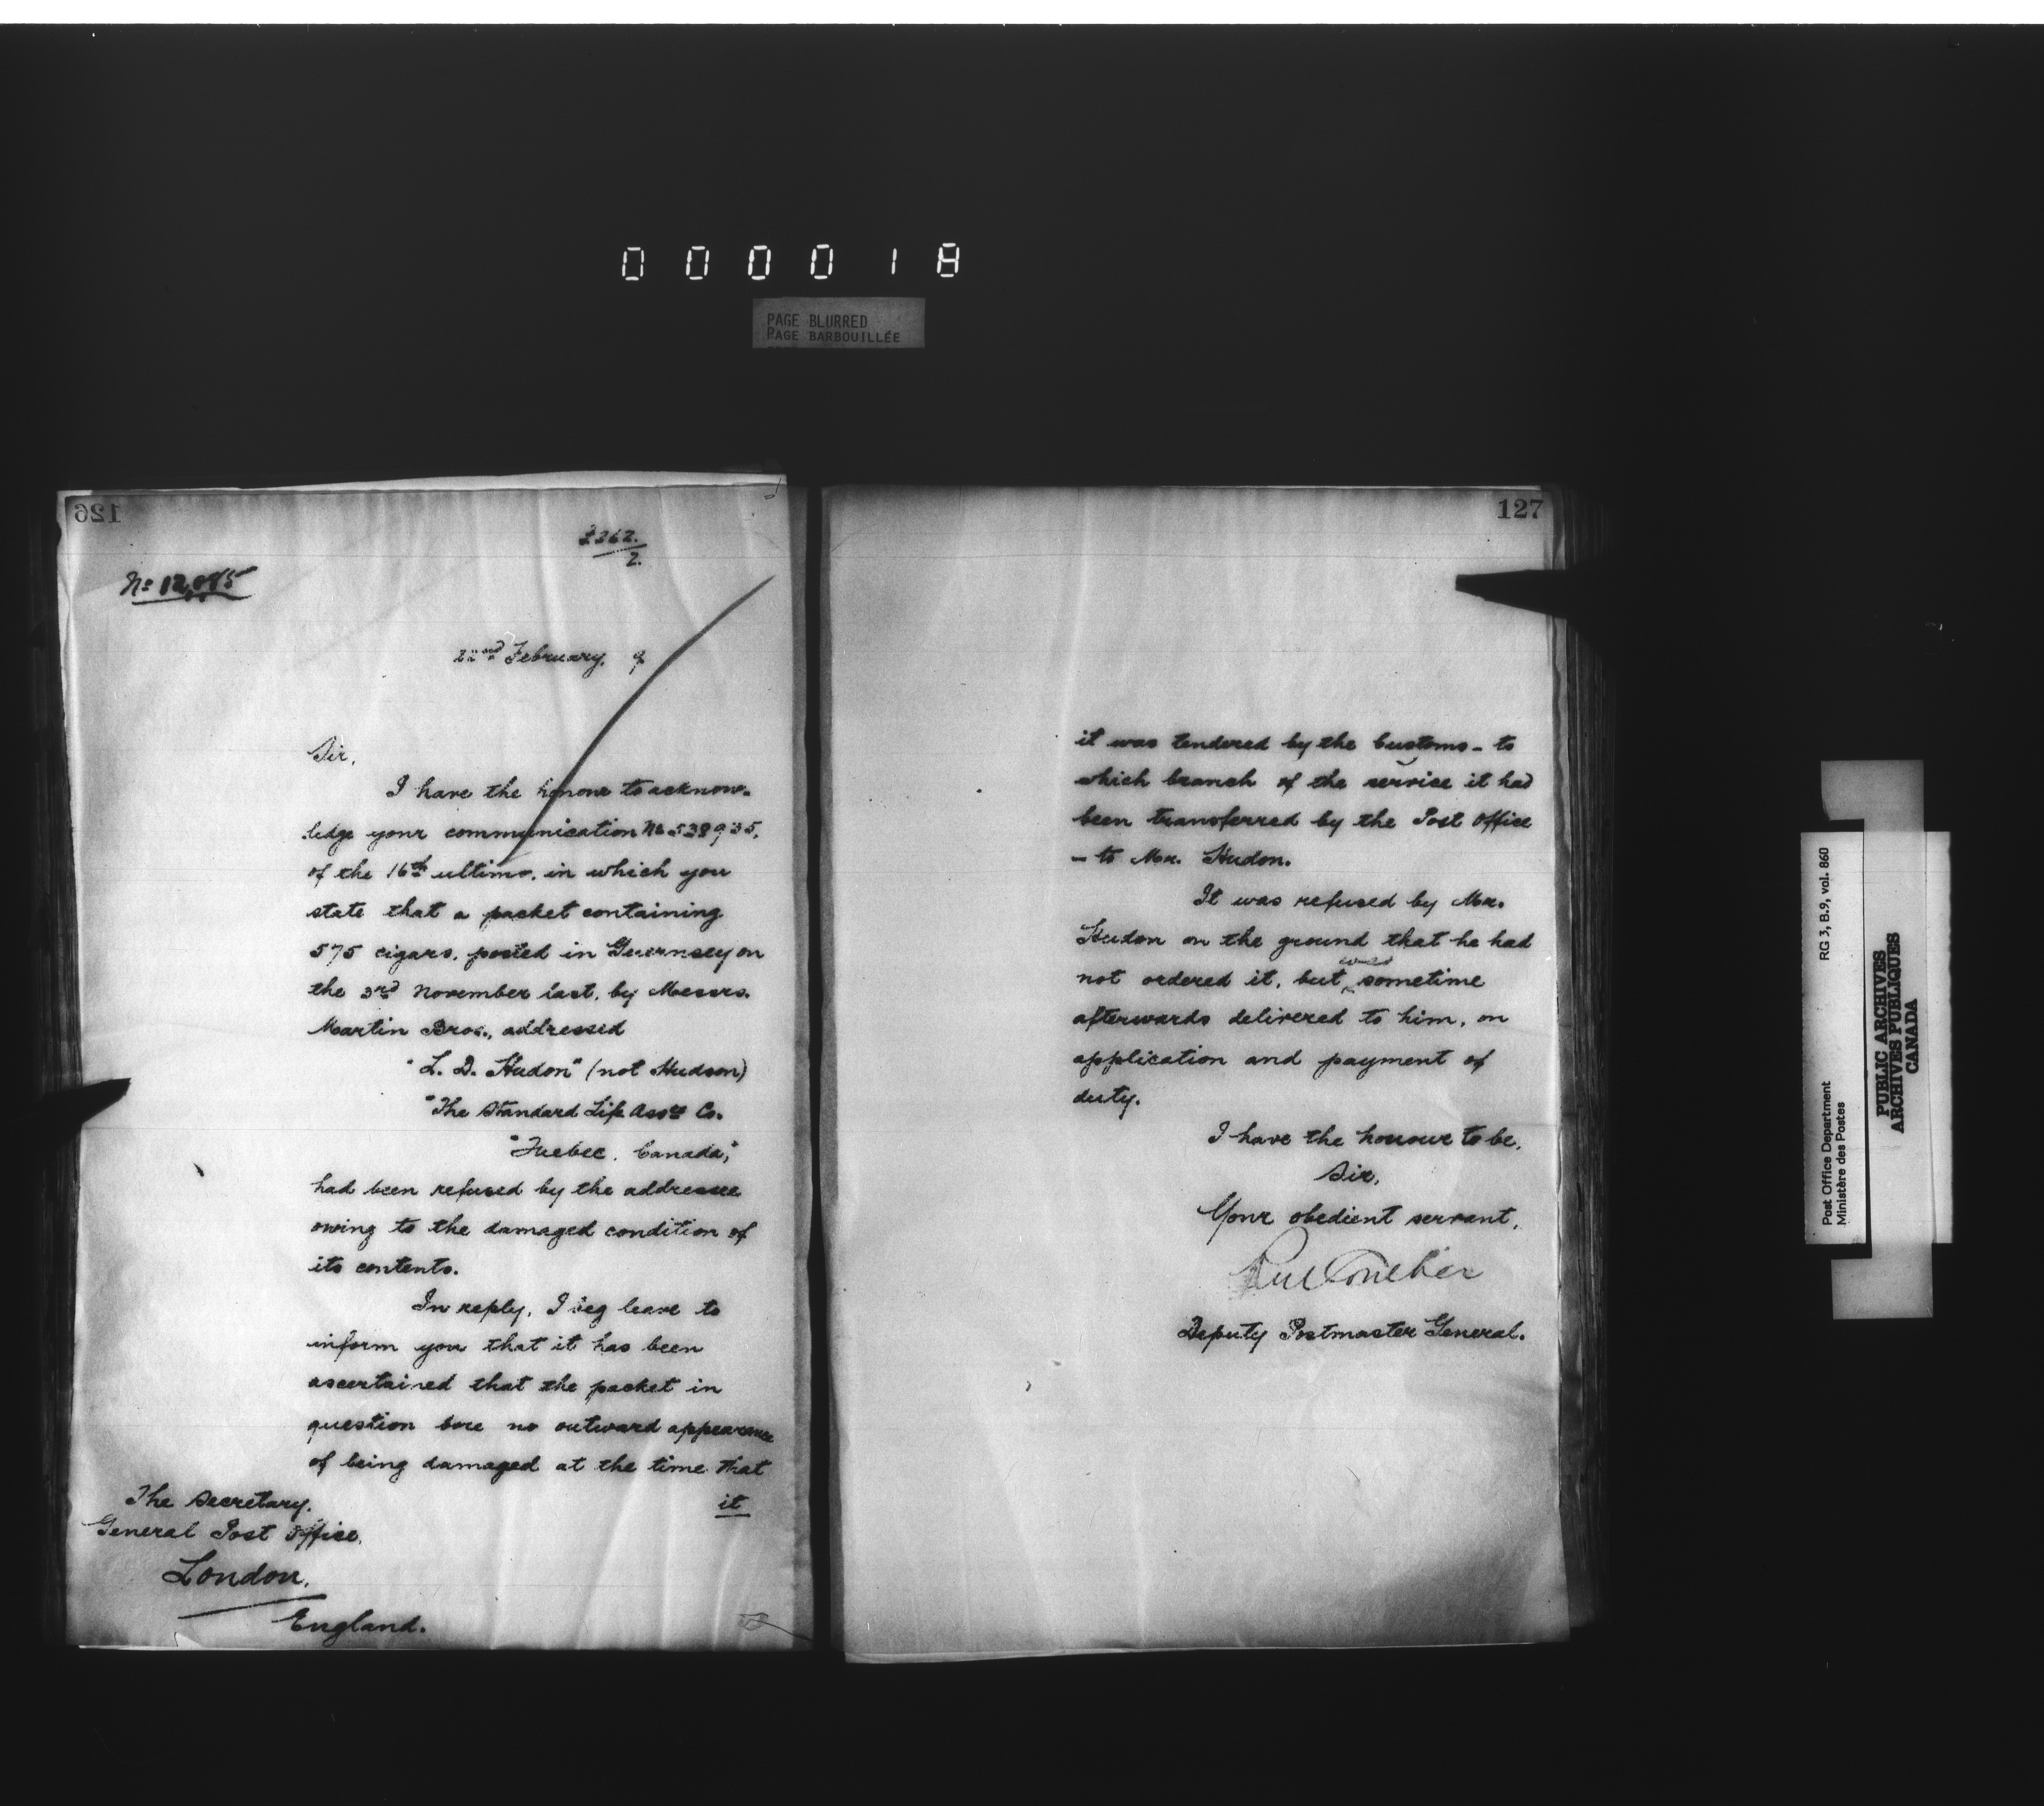 0 0 0 0 1 8
PAGE BLURRED
PAGE BARBOUILLÉE
126
2.
No
22nd February, 9
Sir,
I have the honour to acknow-
ledge your communication No 538935,
of the 16th ultimo, in which you
state that a packet containing
575 cigars, posted in Guernsey on
the 3rd November last, by Messrs.
Martin Bros., addressed
"L. D. Hudon" (not Hudson)
"The Standard Life Assce Co.
"Quebec, Canada,"
had been refused by the addressee
owing to the damaged condition of
its contents.
In reply, I beg leave to
inform you that it has been
ascertained that the packet in
question bore no outward appearance
of being damaged at the time that
it
The Secretary,
General Post Office,
London,
England.
127
it was tendered by the Customs - to
which branch of the service it had
been transferred by the Post Office
- to Mr. Hudon.
It was refused by Mr.
Hudon on the ground that he had
not ordered it, but was sometime
afterwards delivered to him, on
application and payment of
duty.
I have the honour to be,
Sir,
Your obedient servant,
Deputy Postmaster General.
Post Office Department
Ministère des Postes
RG 3, B.9, vol. 860
PUBLIC ARCHIVES
ARCHIVES PUBLIQUES
CANADA